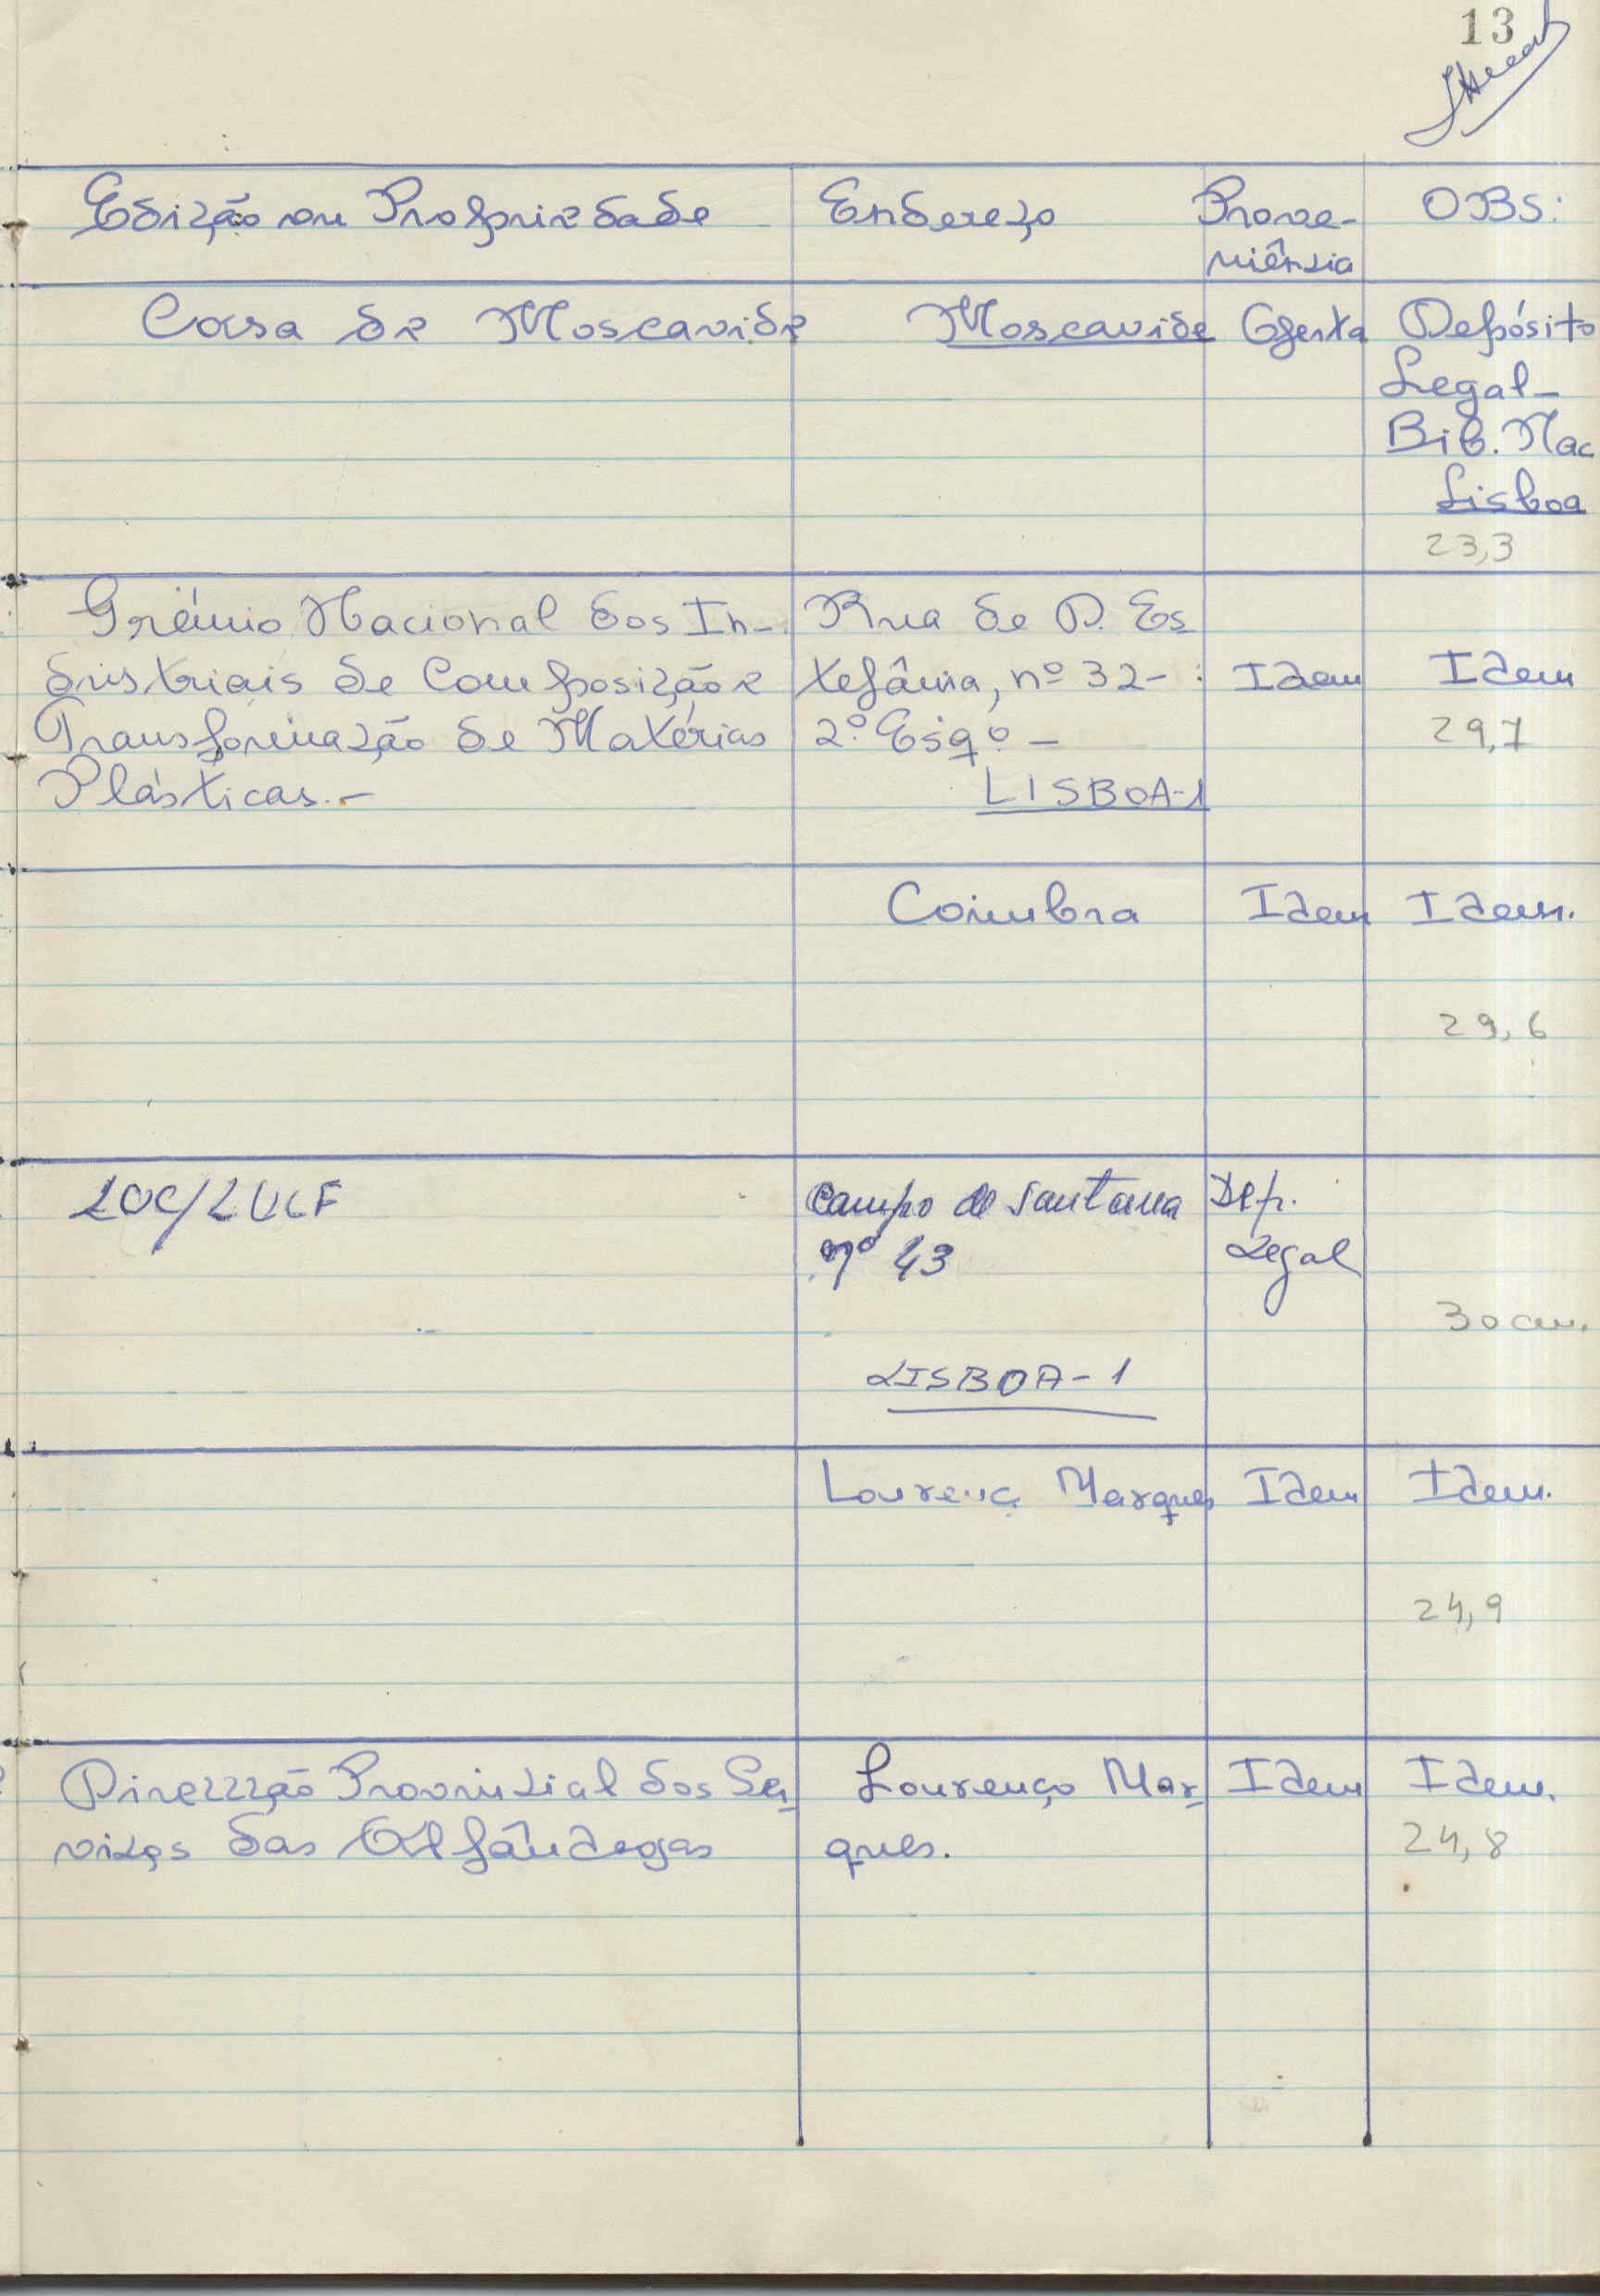 13
Edição ou Propriedade Endereço Prove- OBS:
niência
Casa de Moscavide Moscavide Oferta Depósito
Legal-
Bib. Nac
Lisboa
23,3
Grémio Nacional dos In- Rua de D. Es
dustriais de Composição e tefânia, nº 32- Idem Idem
Transformação de Matérias 2º Esqº - 29,7
Plásticas.- LISBOA-1
Coimbra Idem Idem.
29,6
LOC/LOCF Campo de Santana Dep.
nº 43 Legal
30 cm.
LISBOA-1
Lourenç Marques Idem Idem.
24,9
Direcção Provincial dos Ser Lourenço Mar Idem Idem.
viços das Alfândegas ques. 24,8